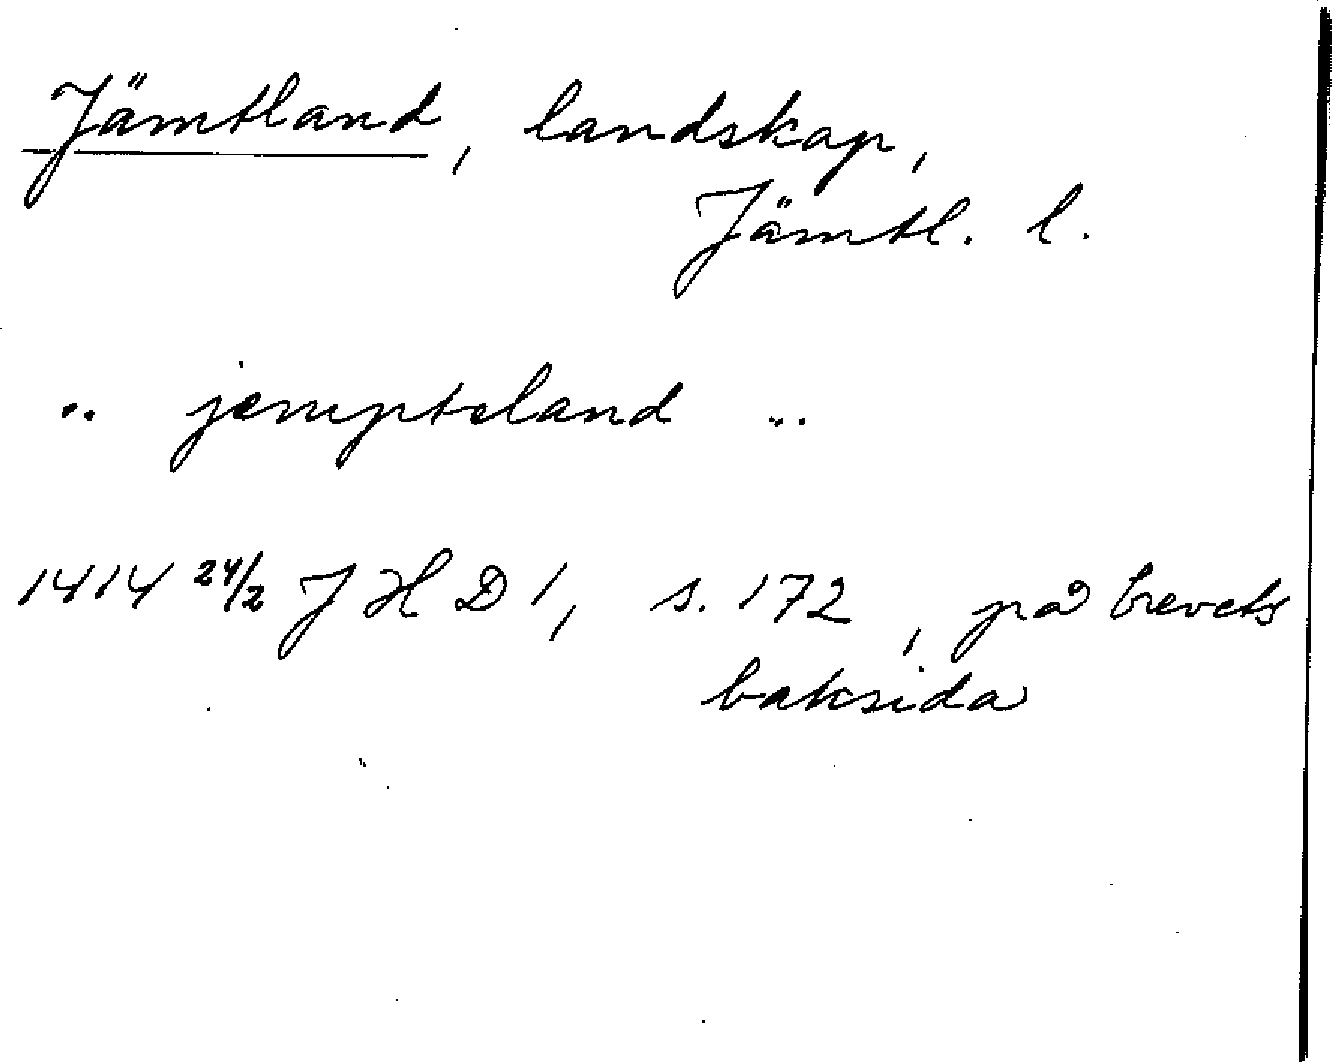 Jämtland, landskap,
Jämtl. l.
.. jempteland ...
1414 24/2 J H D 1, s. 172, på brevets
baksida